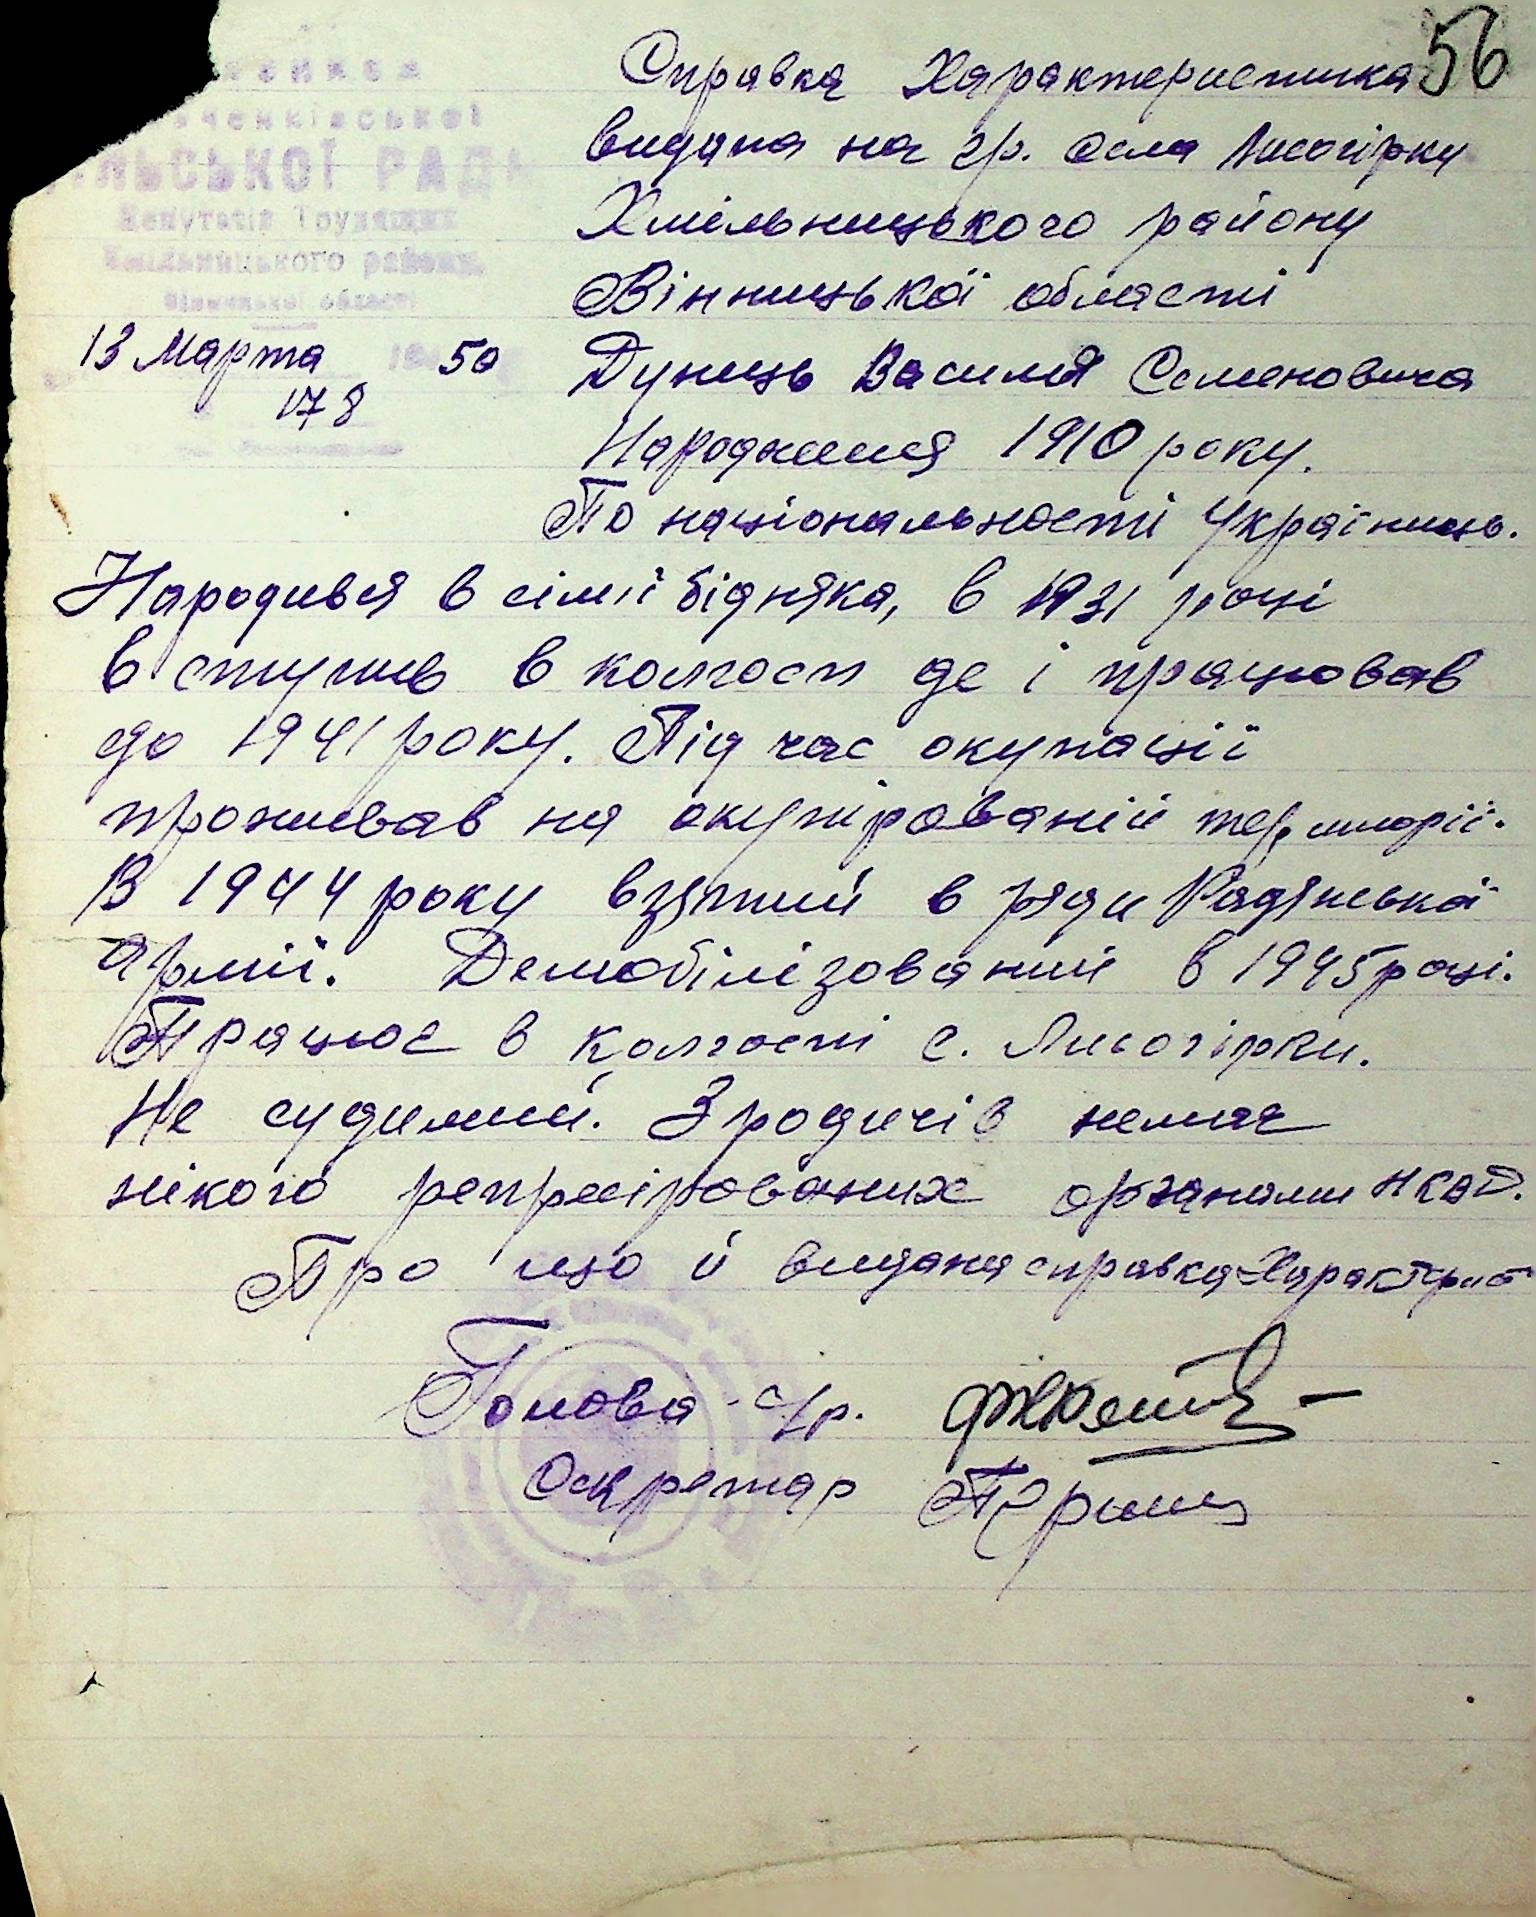 56
Справка Характеристика
видана на гр. села Лисогірку
Хмільницького району
Вінницької области
СЬКОЇ РАД
Депутатів Трудящих
Хмільницького району
Вінницької області
13 Марта 50
178
Дунець Василя Семеновича
Народження 1910 року.
По національності Українець.
Народився в сімії бідняка, в 1931 році
вступив в колгосп де і працював
до 1941 року. Під час окупації
проживав на окупірованій території.
В 1944 року взятий в ряди Радянської
Армії. Демобілізований в 1945 році.
Працює в колгоспі с. Лисогірки.
Не судимий. З родичів немає
нікого репресірованих органами НКВД.
Про що й видана справка-Характерист
Голова с/р.
Секретар